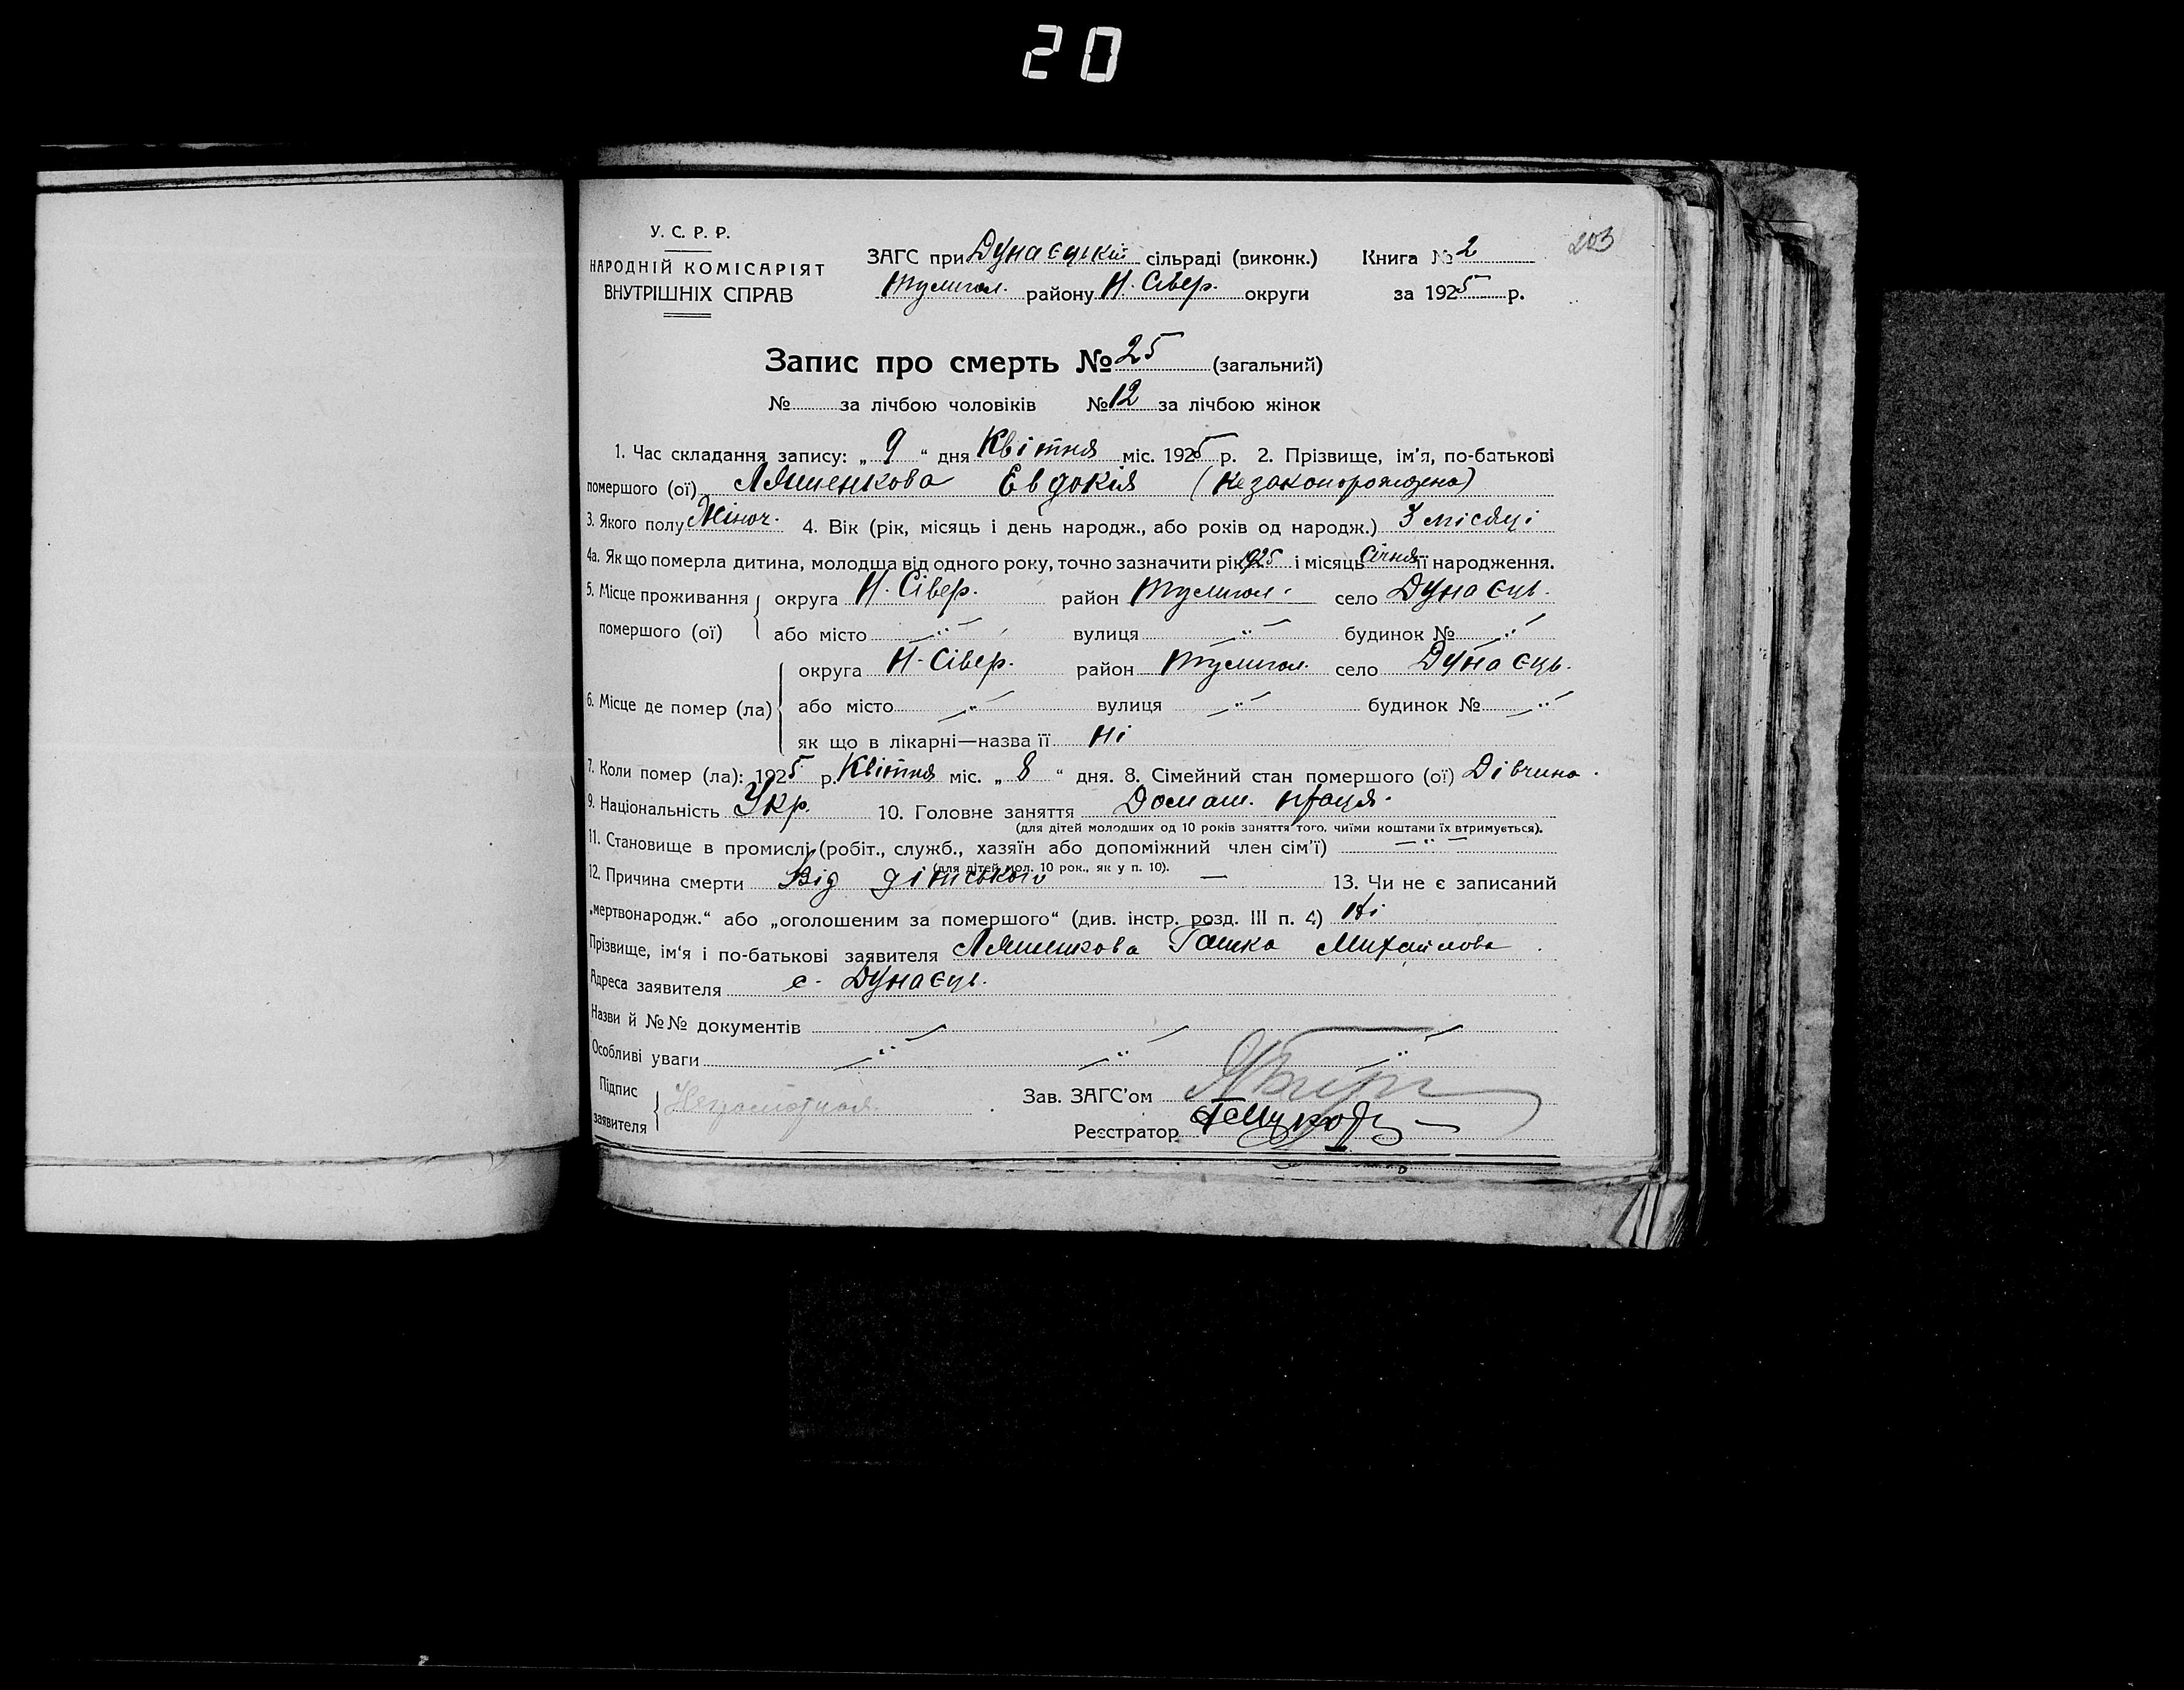 20
203
У. С. Р. Р.
НАРОДНІЙ КОМІСАРІЯТ
ВНУТРІШНІХ СПРАВ
ЗАГС при Дунаєцькій сільраді (виконк.) Книга № 2
Тулигол. району Н. Сівер. округи за 1925 р.
Запис про смерть № 25 (загальний)
№ за лічбою чоловіків № 12 за лічбою жінок
1. Час складання запису: „ 9 “ дня Квітня міс. 1925 р. 2. Прізвище, ім'я, по-батькові
помершого (ої) Ляшенкова Евдокія (незаконорождена)
3. Якого полу Жіноч. 4. Вік (рік, місяць і день народж., або років од народж.) 3 місяці
4а. Як що померла дитина, молодша від одного року, точно зазначити рік 1925 і місяць Січня її народження.
5. Місце проживання округа Н. Сівер. район Тулигол. село Дунаєць.
помершого (ої) або місто —„— вулиця —„— будинок № —„—
округа Н-Сівер. район Тулигол. село Дунаєць.
6. Місце де помер (ла) або місто —„— вулиця —„— будинок № —„—
як що в лікарні—назва її Ні
7. Коли помер (ла): 1925 р. Квітня міс. „ 8 “ дня. 8. Сімейний стан помершого (ої) Дівчина.
9. Національність Укр. 10. Головне заняття Домаш. праця.
(для дітей молодших од 10 років заняття того, чиїми коштами їх втримується).
11. Становище в промислі (робіт., служб., хазяїн або допоміжний член сім'ї) —„—
(для дітей мол. 10 рок., як у п. 10).
12. Причина смерти Від дітського — 13. Чи не є записаний
„мертвонародж.“ або „оголошеним за помершого“ (див. інстр. розд. III п. 4) Ні
Прізвище, ім'я і по-батькові заявителя Ляшенкова Гашка Михайлова
Адреса заявителя с. Дунаєць.
Назви й №№ документів —„—
Особливі уваги —„— —„— —„—
Підпис
заявителя Неграмотная
Зав. ЗАГС'ом
Реєстратор